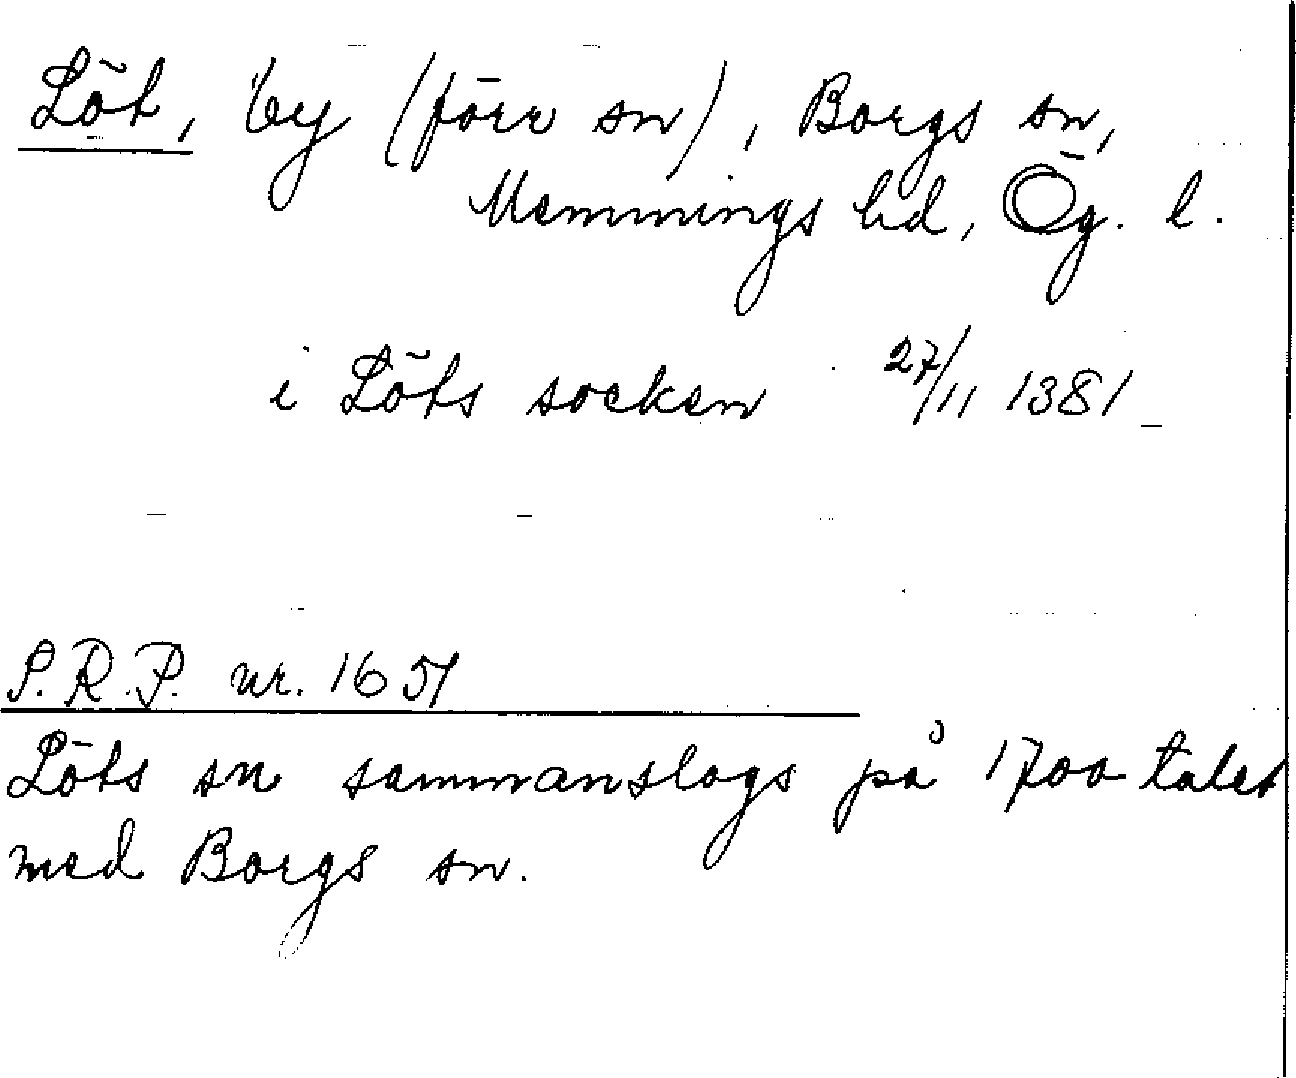 Löt, by (förr sn), Borgs sn,
Memmings hd, Ög. l.
i Löts socken 27/11 1381
S.R.P. nr. 1651
Löts sn sammanslogs på 1700 talet
med Borgs sn.